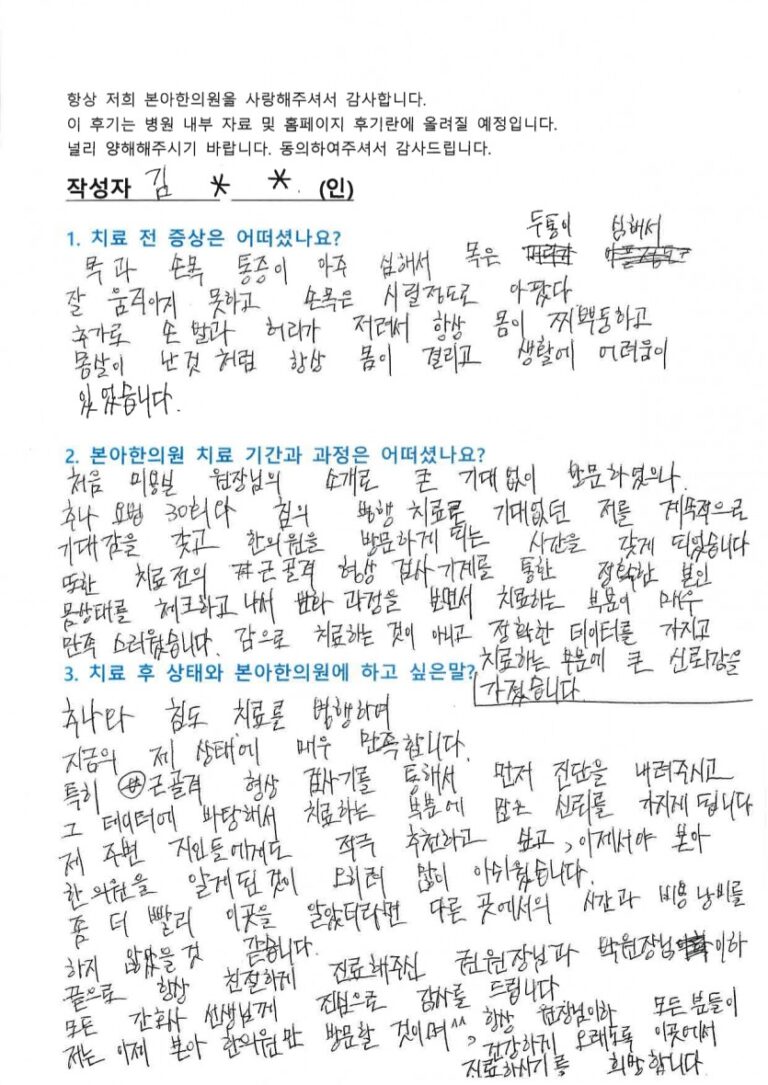 항상 저희 본아한의원을 사랑해주셔서 감사합니다.
이 후기는 병원 내부 자료 및 홈페이지 후기란에 올려질 예정입니다.
널리 양해해주시기 바랍니다. 동의하여주셔서 감사드립니다.
작성자 김 * * (인)
1. 치료 전 증상은 어떠셨나요?
두통이 심해서
목과 손목 통증이 아주 심해서 목은
잘 움직이지 못하고 손목은 시릴정도로 아팠다
추가로 손발과 허리가 저려서 항상 몸이 찌뿌둥하고
몸살이 난것 처럼 항상 몸이 결리고 생활에 어려움이
있었습니다.
2. 본아한의원 치료 기간과 과정은 어떠셨나요?
처음 미용실 원장님의 소개로 큰 기대없이 방문하였으나
추나 요법 30회와 침의 병행 치료로 기대없던 저를 계속적으로
기대감을 갖고 한의원을 방문하게 되는 시간을 갖게 되었습니다
또한 치료전의 #근골격 형상 검사기계를 통한 정확한 본인
몸상태를 체크하고 나서 변화 과정을 보면서 치료하는 부분이 매우
만족 스러웠습니다. 감으로 치료하는 것이 아니고 정확한 데이터를 가지고
치료하는 부분에 큰 신뢰감을
가졌습니다.
3. 치료 후 상태와 본아한의원에 하고 싶은말?
추나와 침도 치료를 병행하며
지금의 제 상태에 매우 만족합니다.
특히 #근골격 형상 검사기를 통해서 먼저 진단을 내려주시고
그 데이터에 바탕해서 치료하는 부분에 많은 신뢰를 가지게 됩니다
제 주변 지인들에게도 적극 추천하고 싶고, 이제서야 본아
한의원을 알게된 것이 오히려 많이 아쉬웠습니다.
좀 더 빨리 이곳을 알았더라면 다른 곳에서의 시간과 비용 낭비를
하지 않았을것 같습니다.
끝으로 항상 친절하게 진료해주신 권원장님과 박원장님 이하
모든 간호사 선생님께 진심으로 감사를 드립니다
저는 이제 본아 한의원만 방문할 것이며^^, 항상 원장님이하 모든 분들이
건강하게 오래도록 이곳에서
진료하시기를 희망합니다